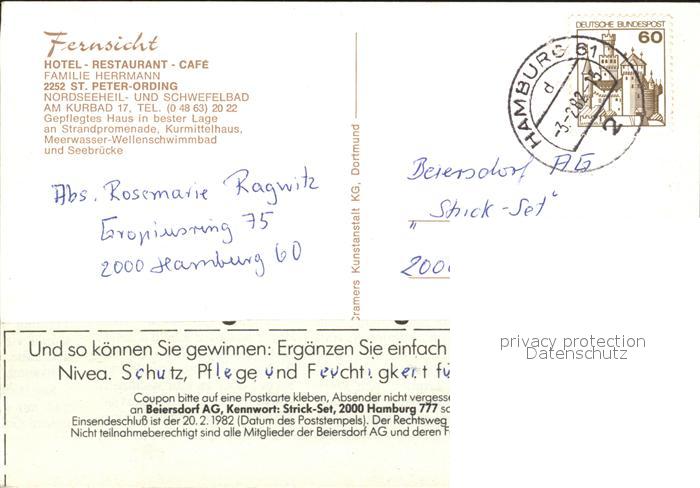 Fernsicht
HOTEL - RESTAURANT - CAFÉ
FAMILIE HERRMANN
2252 ST. PETER-ORDING
NORDSEEHEIL- UND SCHWEFELBAD
AM KURBAD 17, TEL. (0 48 63) 20 22
Gepflegtes Haus in bester Lage
an Strandpromenade, Kurmittelhaus,
Meerwasser-Wellenschwimmbad
und Seebrücke
Abs. Rosemarie Ragwitz
Gropiusring 75
2000 Hamburg 60
Cramers Kunstanstalt KG, Dortmund
DEUTSCHE BUNDESPOST
60
HAMBURG 61
d
-3.-2.82-15
2
Beiersdorf AG
"Strick-Set"
2000
privacy protection
Datenschutz
Und so können Sie gewinnen: Ergänzen Sie einfach
Nivea. Schutz, Pflege und Feuchtigkeit fü
Coupon bitte auf eine Postkarte kleben, Absender nicht vergesse
an Beiersdorf AG, Kennwort: Strick-Set, 2000 Hamburg 777 sc
Einsendeschluß ist der 20. 2. 1982 (Datum des Poststempels). Der Rechtsweg
Nicht teilnahmeberechtigt sind alle Mitglieder der Beiersdorf AG und deren F